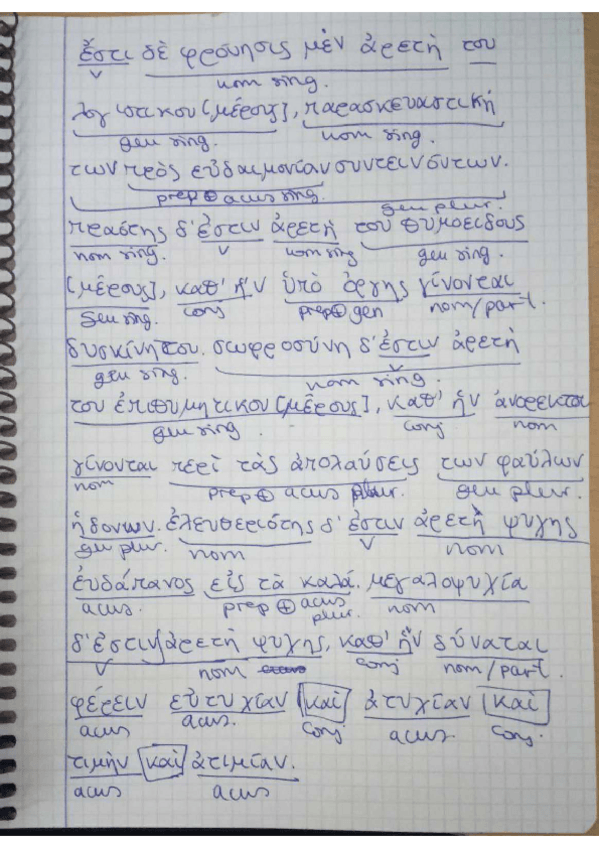 ἔστι δὲ φρόνησις μὲν ἀρετὴ του
V nom sing.
λογιστικου [μέρους], παρασκευαστική
gen sing. nom sing.
των πρὸς εὐδαιμονίαν συντεινόντων.
prep ⊕ acus sing. gen plur.
πραότης δ'ἐστιν ἀρετὴ του θυμοειδους
nom sing. V nom sing gen sing.
[μέρους], καθ' ἥν ὑπὸ ὀργης γίνονται
gen sing. conj prep⊕ gen nom/part.
δυσκίνητοι. σωφροσύνη δ'ἐστιν ἀρετὴ
gen sing. V nom sing.
του ἐπιθυμητικου [μέρους], καθ' ἥν ἀνορεκτοι
gen sing. conj nom
γίνονται περὶ τὰς ἀπολαύσεις των φαύλων
nom prep ⊕ acus plur. gen plur.
ἡδονων. ἐλευθεριότης δ'ἐστιν ἀρετὴ ψυχης
gen plur. nom V nom
εὐδάπανος εἰς τὰ καλά. μεγαλοψυχία
acus. prep ⊕ acus plur. nom
δ'ἐστιν ἀρετὴ ψυχης, καθ' ἥν δύναται
V nom conj nom/part.
φέρειν εὐτυχίαν καὶ ἀτυχίαν καὶ
acus acus. conj acus. conj.
τιμὴν καὶ ἀτιμίαν.
acus acus